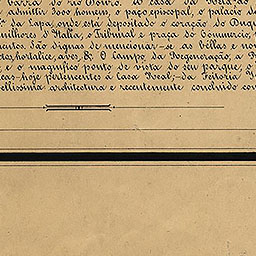 barra do rio Douro. A casa da Relação
admittir 3000 homens, o paço episcopal, o palacio d
da Lapa, onde está depositado o coração do Duqu
milhões d'Italia, o Tribunal e praça do Commercio,
mentos são dignas de mencionar-se as bellas e no
tes, hortalice, aves, &. O Campo da Regeneração, a P
, e o magnifico ponto de vista do seu parque,
cas-hoje pertencentes á Casa Real;-da Feitoria
ellissima architectura e recentemente concluido co